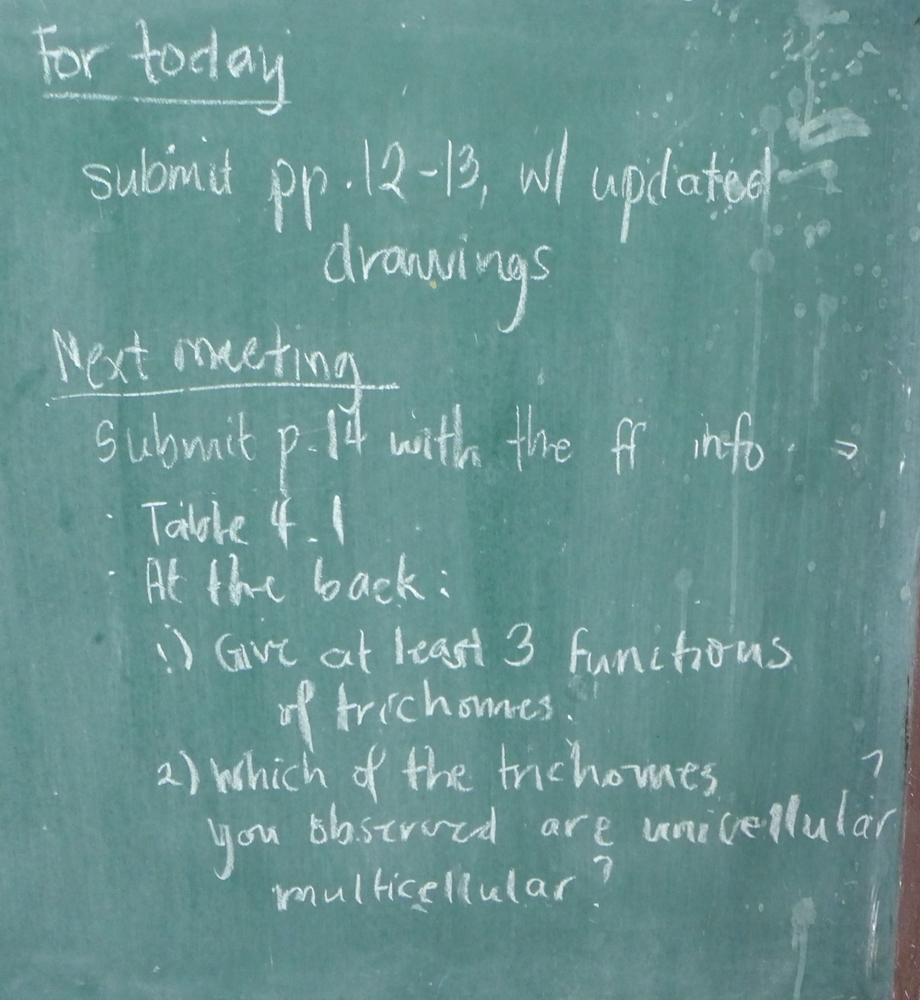 For today
submit pp. 12-13, w/ updated
drawings
Next meeting
Submit p. 14 with the ff info. →
· Table 4.1
· At the back:
1) Give at least 3 functions
of trichomes.
2) Which of the trichomes
you observed are unicellular?
multicellular?